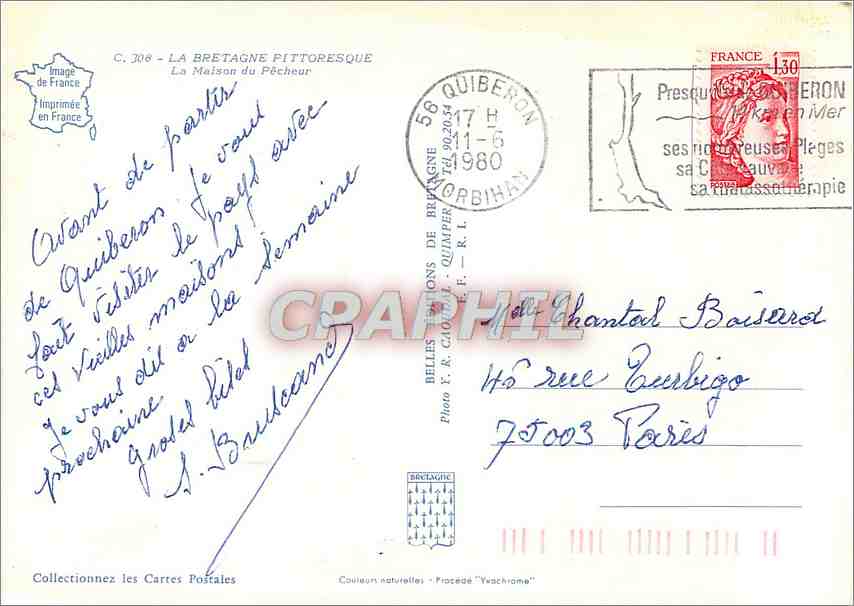 C. 308 - LA BRETAGNE PITTORESQUE
La Maison du Pêcheur
Image
de France
Imprimée
en France
Avant de partir
de Quiberon je vous
fait visiter le pays avec
ces vieilles maisons!
je vous dis a la semaine
prochaine
groses bises
S. Bruscand
56 QUIBERON
17 H
11-6
1980
MORBIHAN
FRANCE
1,30
POSTES
Presqu' QUIBERON
14 km en Mer
ses nombreuses Plages
sa Côte Sauvage
sa thalassothérapie
BELLES ÉDITIONS DE BRETAGNE
Photo Y. R. CAOUDAL - QUIMPER Tél. 90.20.54
E. F. — R. I.
CRAPHIL
Melle Chantal Boisard
45 rue Turbigo
75003 Paris
BRETAGNE
Collectionnez les Cartes Postales
Couleurs naturelles - Procédé "Yvachrome"